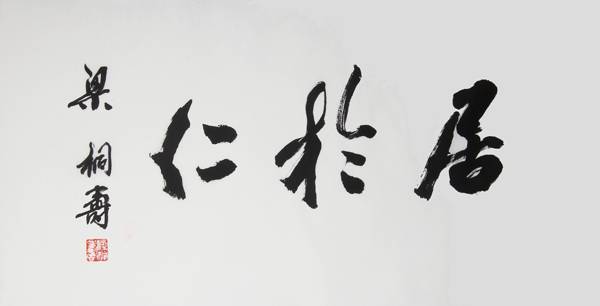 居於仁
梁桐壽